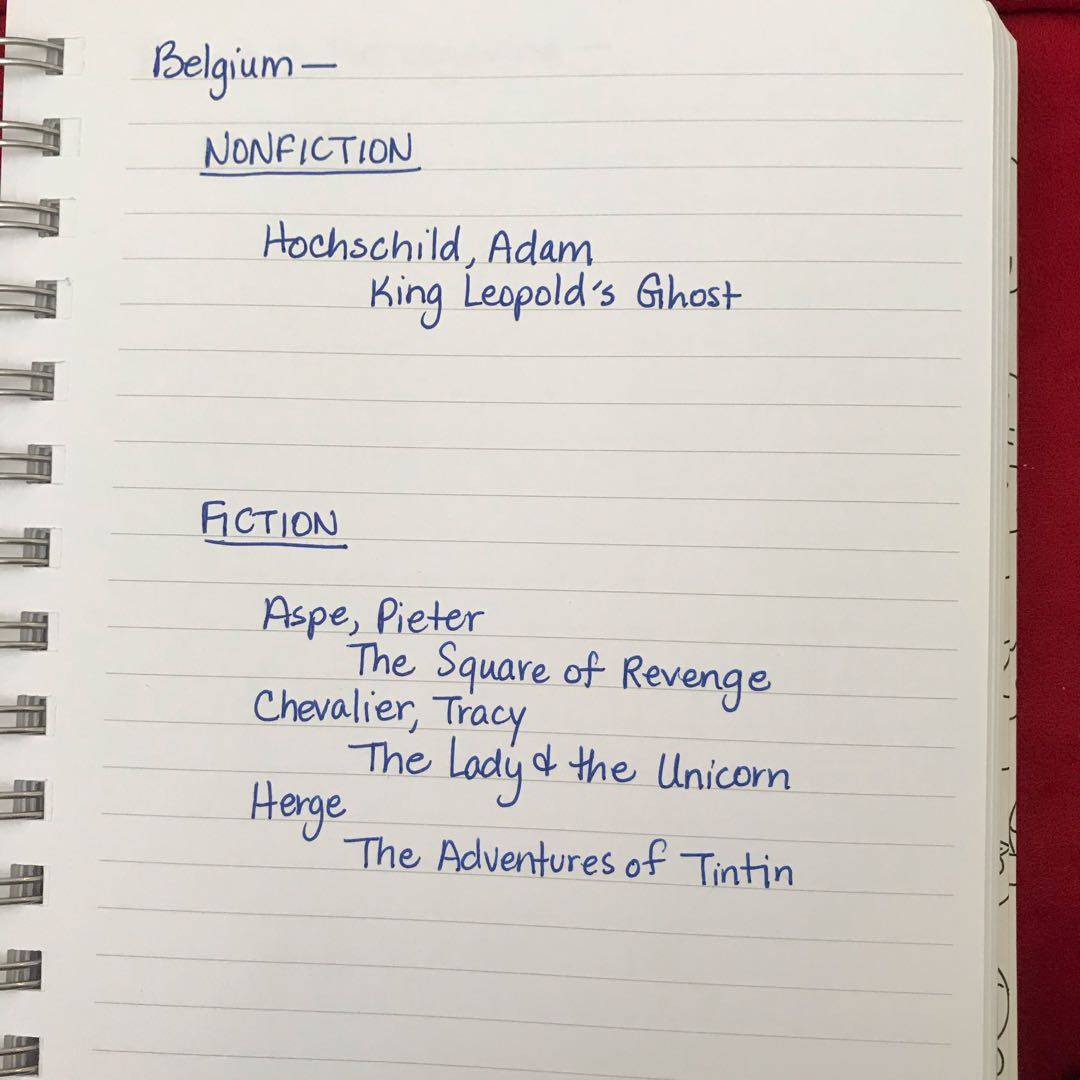 Belgium —
NONFICTION
Hochschild, Adam
King Leopold's Ghost
FICTION
Aspe, Pieter
The Square of Revenge
Chevalier, Tracy
The Lady & the Unicorn
Herge
The Adventures of Tintin